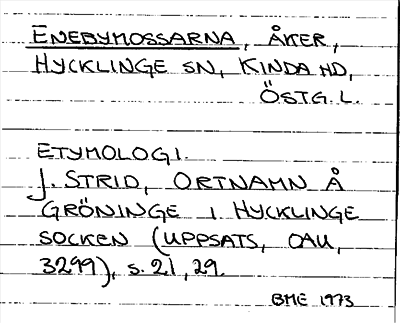 ENEBYMOSSARNA, ÅKER,
HYCKLINGE SN, KINDA HD,
ÖSTG. L.
ETYMOLOGI.
J. STRID, ORTNAMN Å
GRÖNINGE I HYCKLINGE
SOCKEN (UPPSATS, OAU,
3299), s. 21, 29.
BME 1973